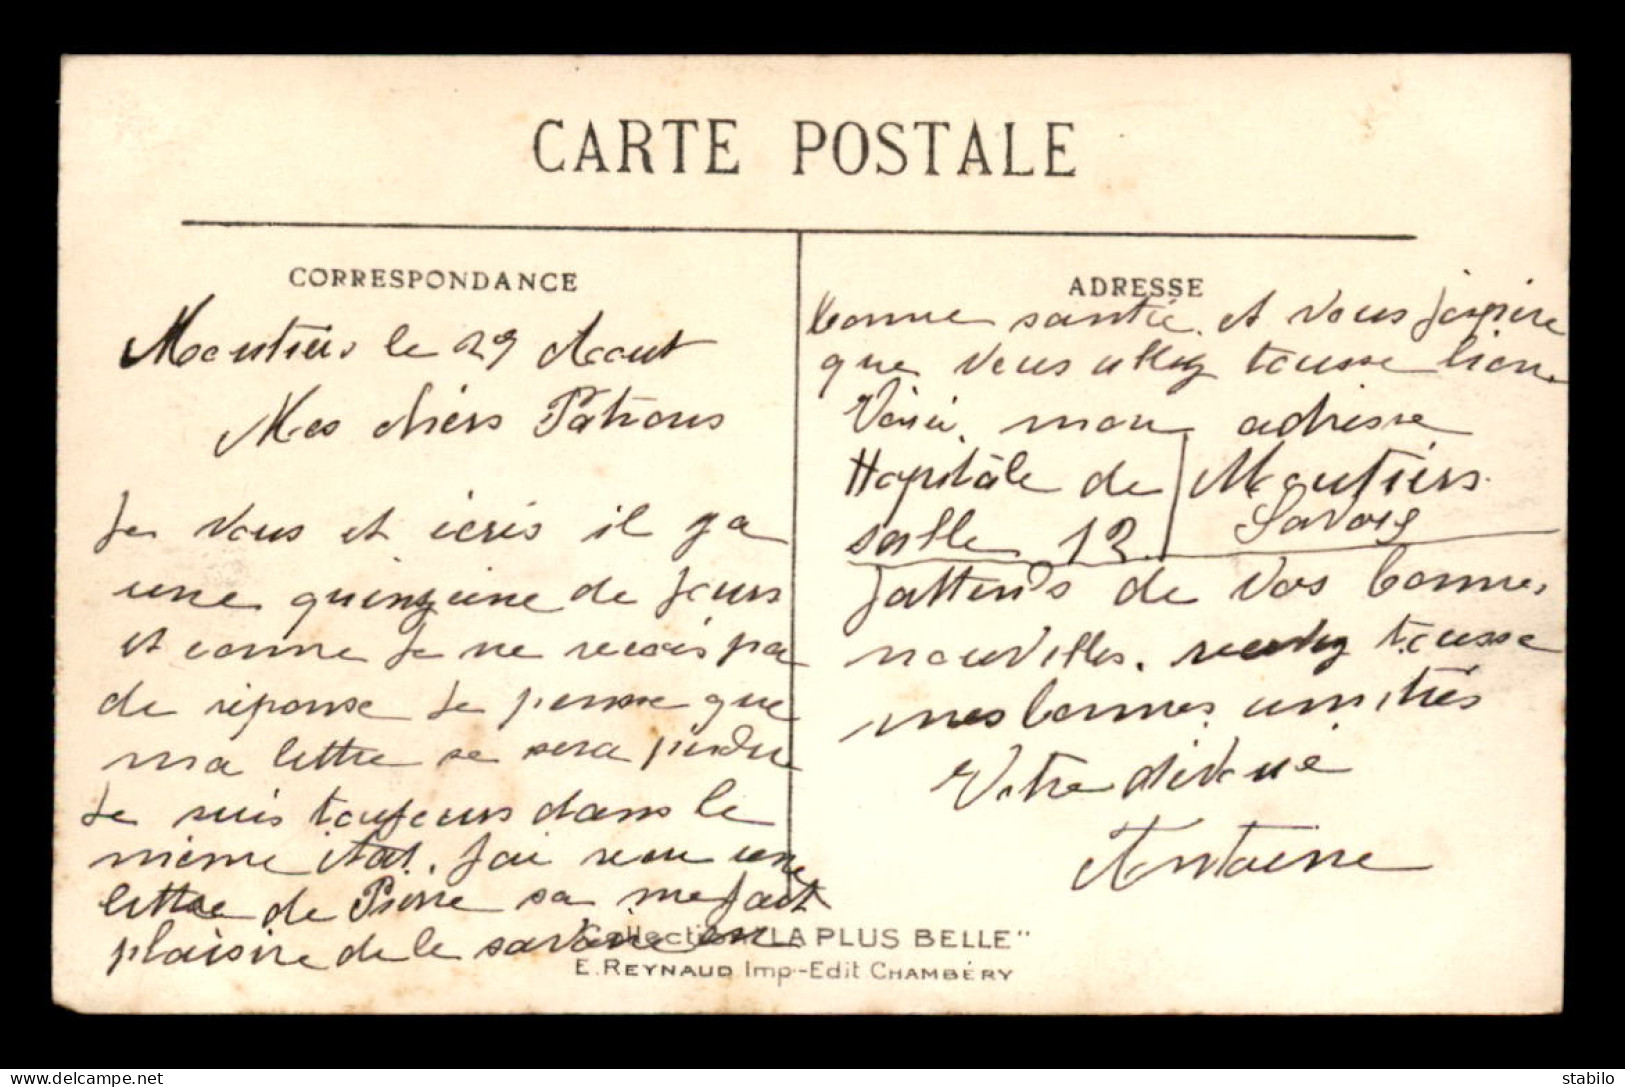 CARTE POSTALE
CORRESPONDANCE
Moutiers le 29 Aout
Mes chers Patrons
Je vous et écris il ya
une quinzeine de Jours
et comme Je ne recois pa
de réponse Je pensse que
ma lettre se sera perdue
Je suis toujours dans le
mieme état. J'ai recu une
lettre de Pierre sa me fait
plaisire de le savoire en
ADRESSE
bonne santée et vous J'espire
que vous allez tousse bien
Voici mon adresse
Hopitâle de Moutiers
salle 12 Savoie
J'attends de vos bonnes
nouvelles. recevez tousse
mes bonnes amitiés
Votre dévoué
Antoine
Collection "LA PLUS BELLE"
E. REYNAUD Imp.-Edit CHAMBÉRY
stabilo